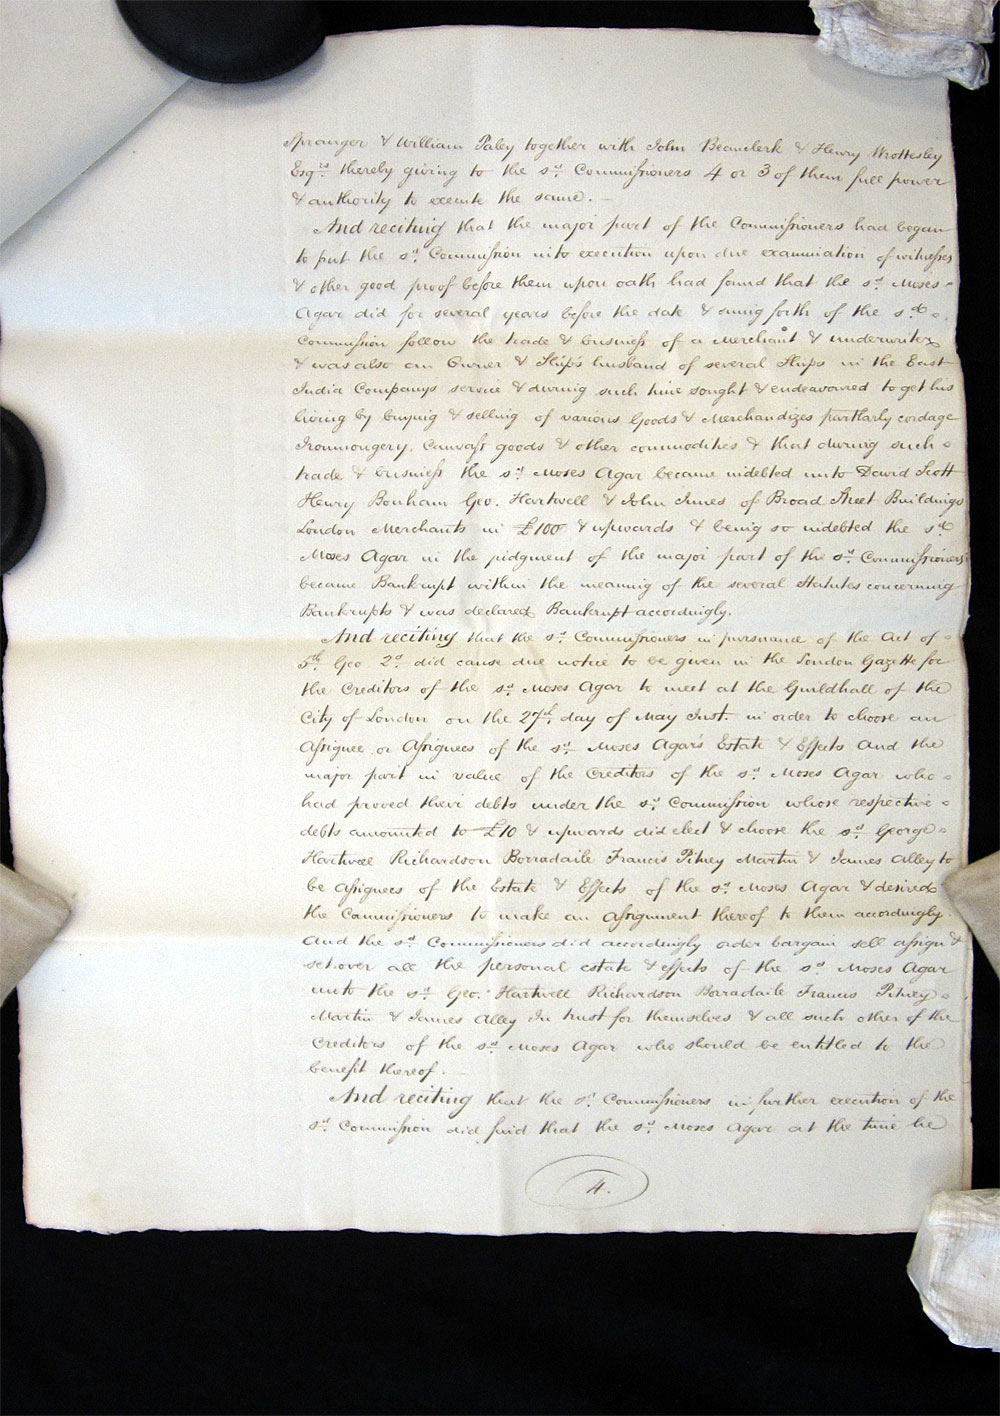 Spranger & William Paley together with John Beauclerk & Henry Wrottesley
Esqrs. thereby giving to the sd. Commissioners 4 or 3 of them full power
& authority to execute the same. —
And reciting that the major part of the Commissioners had began
to put the sd. Commission into execution upon due examination of witnesses
& other good proof before them upon oath had found that the sd. Moses
Agar did for several years before the date & suing forth of the sd.
Commission follow the trade & business of a Merchant & underwriter
& was also an Owner & Ships husband of several Ships in the East
India Companys service & during such time sought & endeavoured to get his
living by buying & selling of various Goods & Merchandizes partlarly cordage
Ironmongery, Canvass goods & other commodities & that during such
trade & business the sd. Moses Agar became indebted unto David Scott
Henry Bonham Geo. Hartwell & John Innes of Broad Street Buildings
London Merchants in £100 & upwards & being so indebted the sd.
Moses Agar in the judgment of the major part of the sd. Commissioners
became Bankrupt within the meaning of the several Statutes concerning
Bankrupts & was declared Bankrupt accordingly.
And reciting that the sd. Commissioners in pursuance of the Act of
5th. Geo. 2d. did cause due notice to be given in the London Gazette for
the Creditors of the sd. Moses Agar to meet at the Guildhall of the
City of London on the 27th. day of May Inst. in order to choose an
Assignee or Assignees of the sd. Moses Agar's Estate & Effects and the
major part in value of the Creditors of the sd. Moses Agar who
had proved their debts under the sd. Commission whose respective
debts amounted to £10 & upwards did elect & choose the sd. George
Hartwell Richardson Borradaile Francis Pitney Martin & James Alley to
be Assignees of the Estate & Effects of the sd. Moses Agar & desired
the Commissioners to make an assignment thereof to them accordingly.
And the sd. Commissioners did accordingly order bargain sell assign &
set over all the personal estate & effects of the sd. Moses Agar
unto the sd. Geo. Hartwell Richardson Borradaile Francis Pitney
Martin & James Alley In trust for themselves & all such other of the
Creditors of the sd. Moses Agar who should be entitled to the
benefit thereof. —
And reciting that the sd. Commissioners in further execution of the
sd. Commission did find that the sd. Moses Agar at the time he
4.